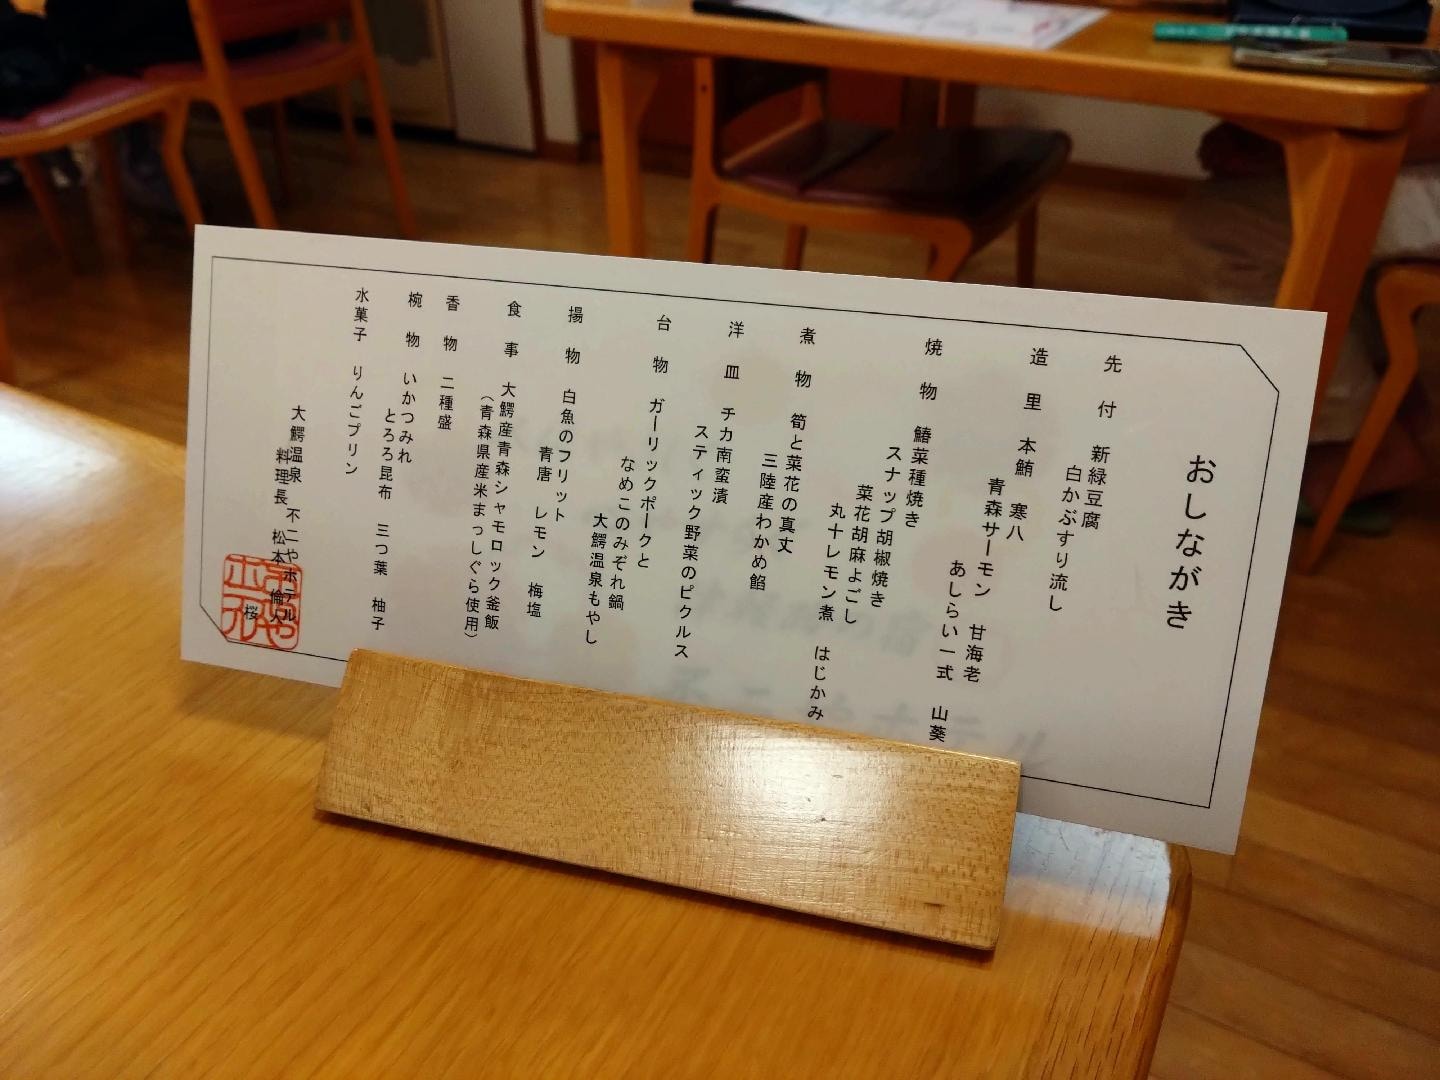 おしながき
先付 新緑豆腐
白かぶすり流し
造里 本鮪 寒八
青森サーモン 甘海老
あしらい一式 山葵
焼物 鰆菜種焼き
スナップ胡椒焼き
菜花胡麻よごし
丸十レモン煮 はじかみ
煮物 筍と菜花の真丈
三陸産わかめ餡
洋皿 チカ南蛮漬
スティック野菜のピクルス
台物 ガーリックポークと
なめこのみぞれ鍋
大鰐温泉もやし
揚物 白魚のフリット
青唐 レモン 梅塩
食事 大鰐産青森シャモロック釜飯
（青森県産米まっしぐら使用）
香物 二種盛
椀物 いかつみれ
とろろ昆布 三つ葉 柚子
水菓子 りんごプリン
大鰐温泉 不二やホテル
料理長 松本
桜